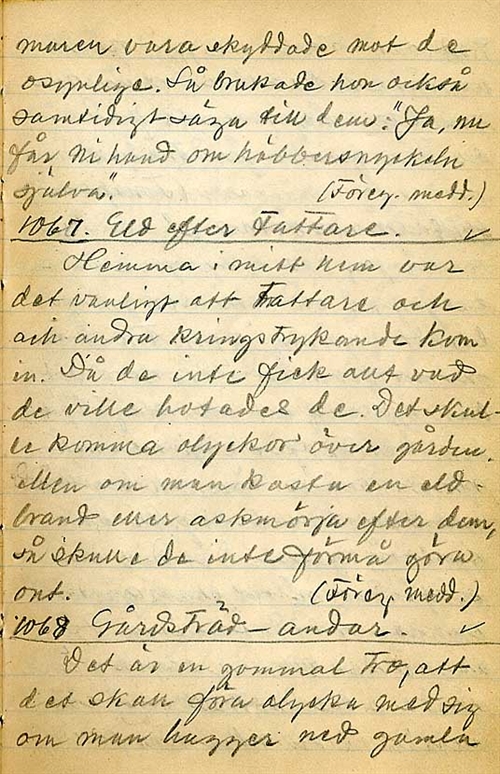 maren vara skyddade mot de
osynliga. Så brukade hon också
samtidigt säga till dem: "Ja, nu
får Ni hand om häbbersnyckeln
själva". (Föreg. medd.)
1067. Eld efter Tattare. ✓
Hemma i mitt hem var
det vanligt att Tattare och
och andra kringstrykande kom
in. Då de inte fick allt vad
de ville hotades de. Det skul-
le komma olyckor över gården.
Men om man kasta en eld-
brand eller askmörja efter dem,
så skulle de inte förmå göra
ont. (Föreg. medd.)
1068 Gårdsträd - andar. ✓
Det är en gammal tro, att
det skall föra olycka med sig
om man hugger ned gamla